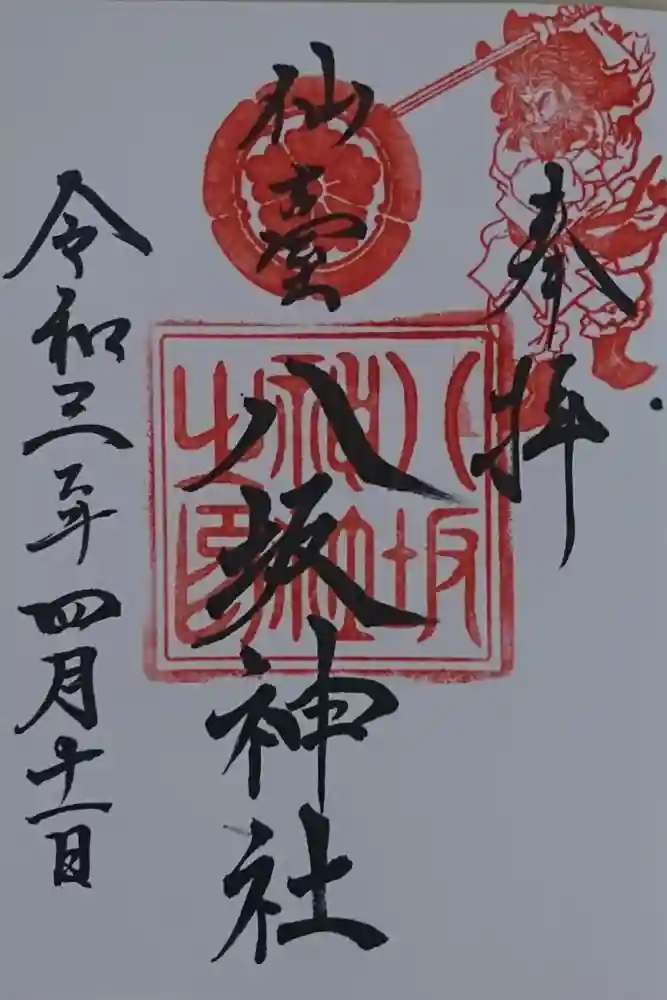 奉拝
仙臺
八坂神社
八坂神社之印
令和三年四月十一日